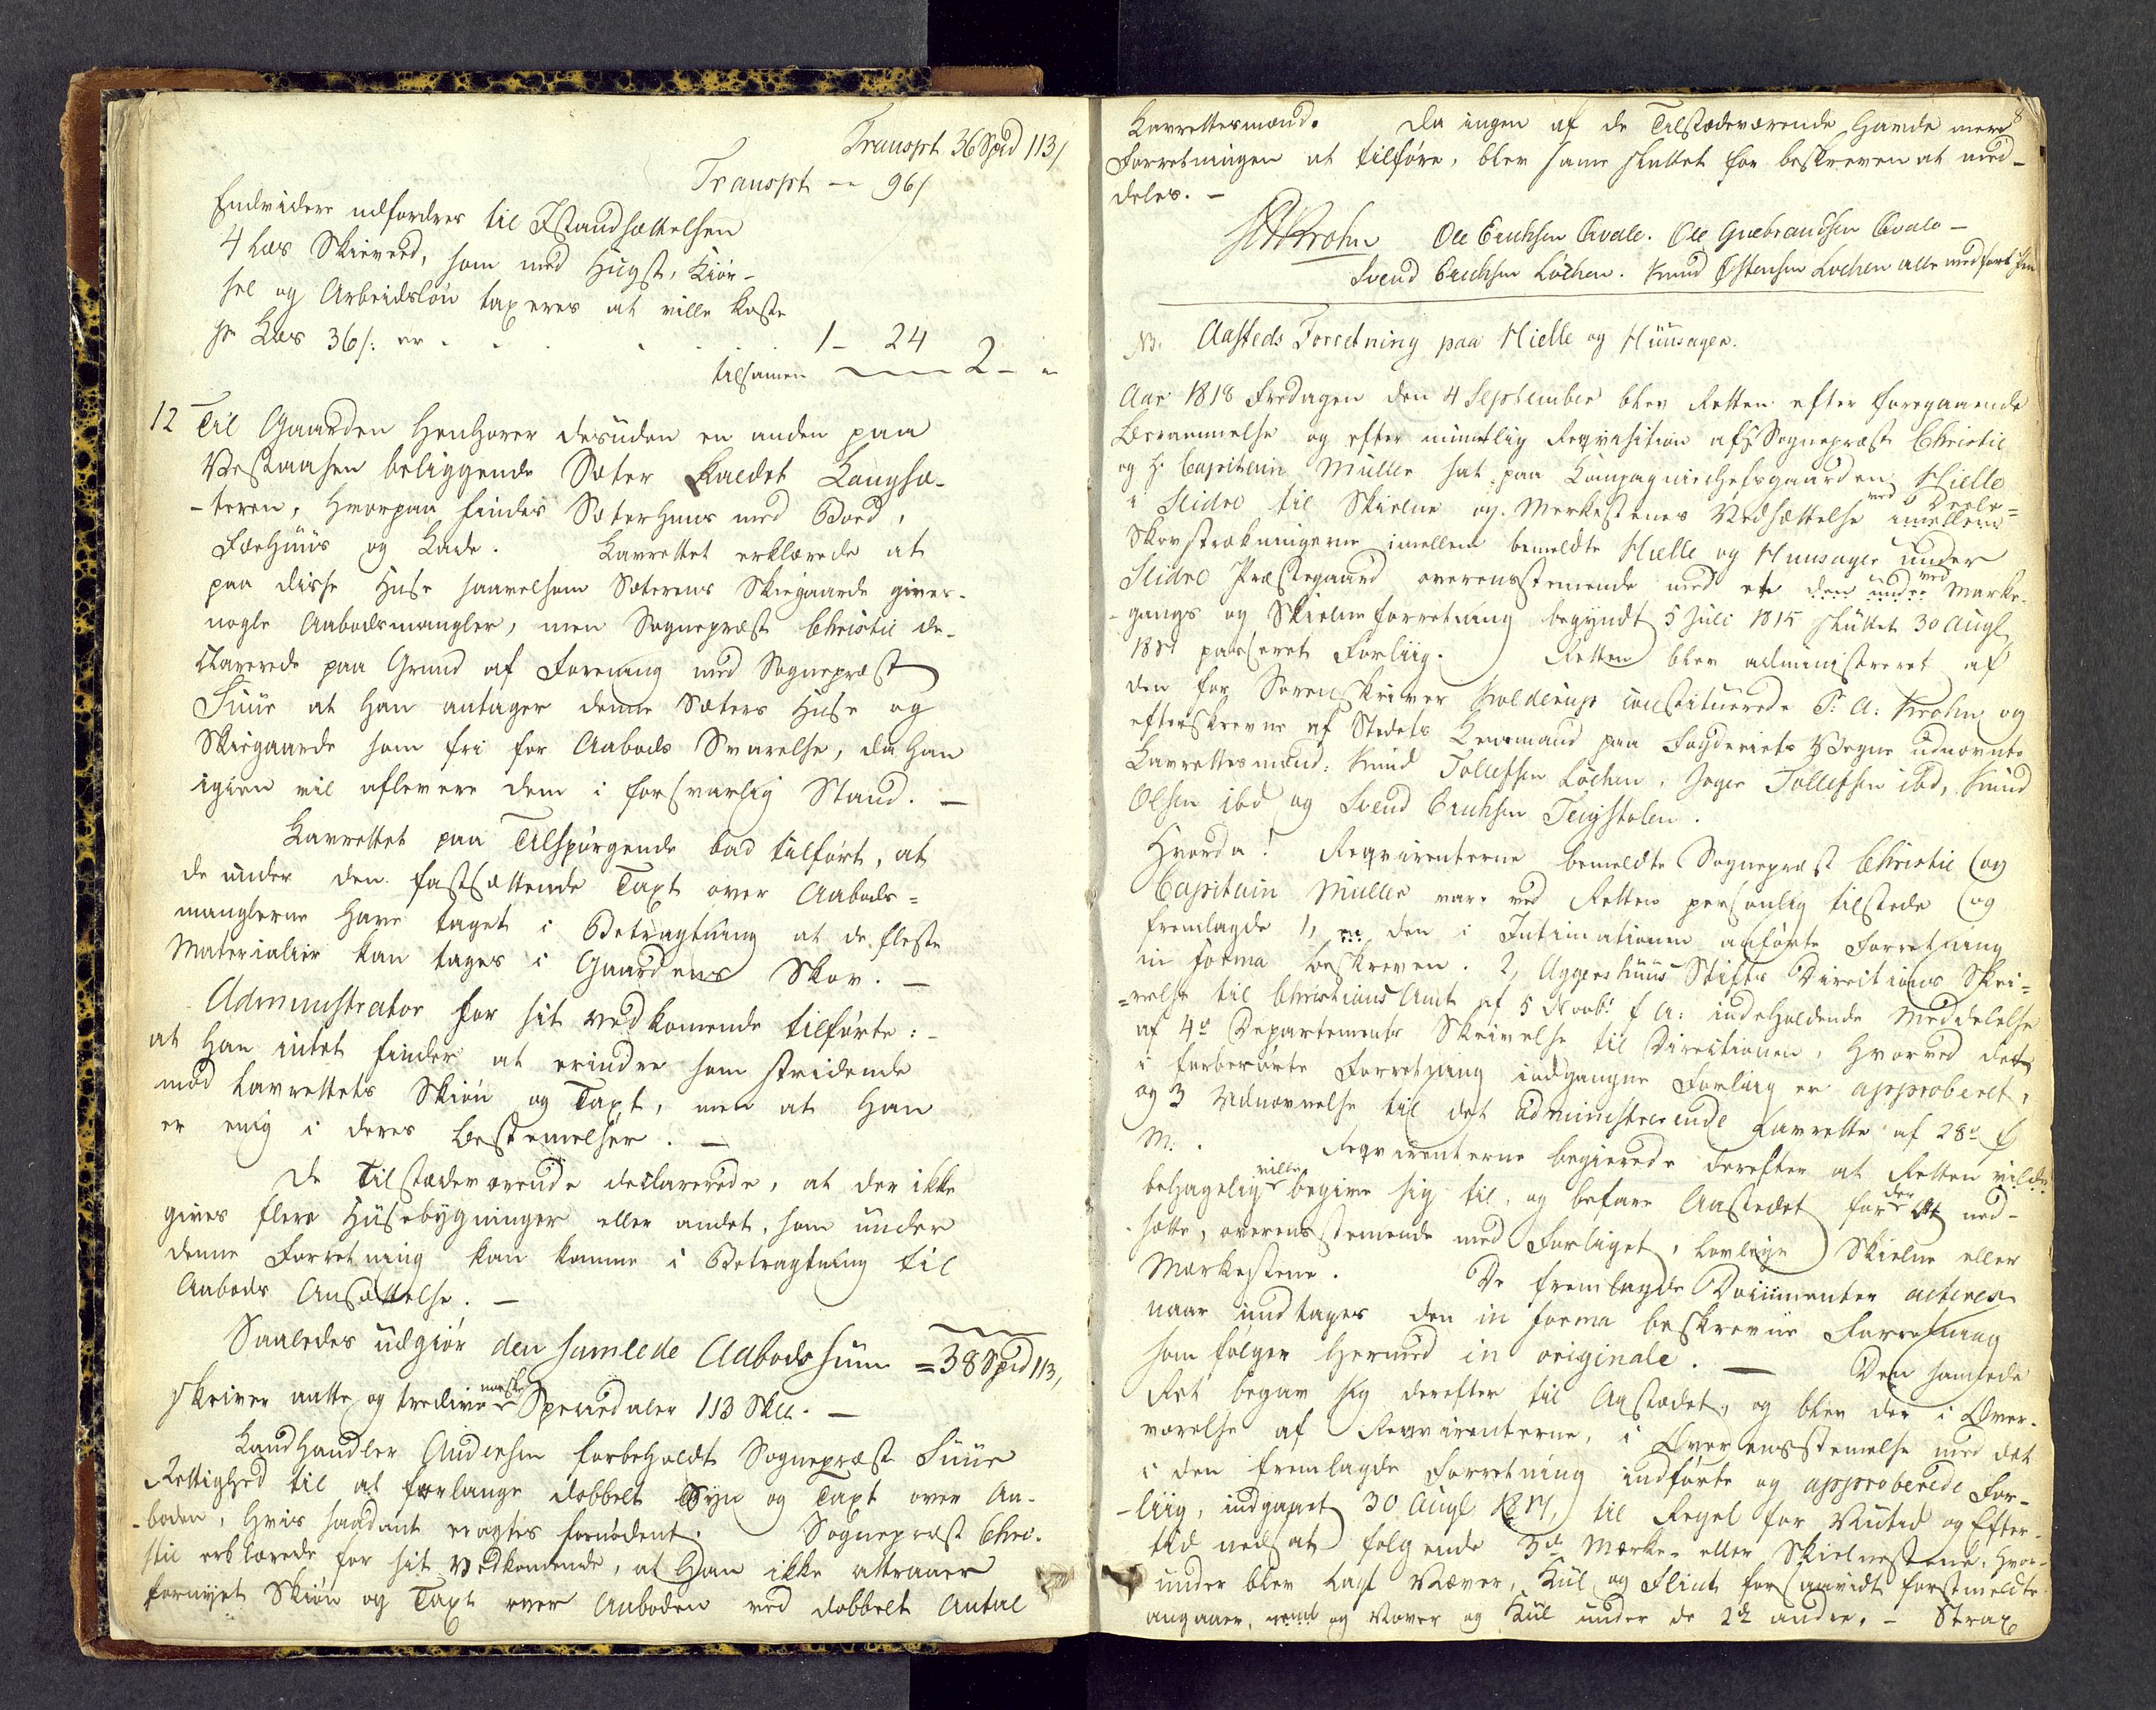 Transpt. 36 Spd 113/
Transpt — " 96/
Endvidere udfordres til Istandsættelsen
4 Læs Skieveed, som med Hugst, Kiør-
sel og Arbeidsløn taxeres at ville koste
pr Læs 36/: er . . . . . . . 1 - 24
tilsamen — 2 - "
12 Til Gaarden henhører desuden en anden paa
Vestaasen beliggende Sæter kaldet Langsæ-
-teren, hvorpaa findes Sæterhuus med Boed,
Fæehuus og Lade. Lavrettet erklærede at
paa disse Huse saavelsom Sæterens Skiegaarde gives
nogle Aabodsmangler, men Sognepræst Christie de-
clarerede paa Grund af Forening med Sognepræst
Tuue at han antager denne Sæters Huse og
Skiegaarde som fri for Aabods Svarelse, da han
igien vil aflevere dem i forsvarlig Stand. —
Lavrettet paa Tilspørgende bad tilført, at
de under den fastsættende Taxt over Aabods=
manglerne have taget i Betragtning at de fleste
Materialier kan tages i Gaardens Skov. —
Administrator for sit vedkomende tilførte: -
at han intet finder at erindre som stridende
mod Lavrettets Skiøn og Taxt, men at han
er enig i deres Bestemelser. —
De Tilstædeværende declarerede, at der ikke
gives flere Huusebygninger eller andet, som under
denne Forretning kan komme i Betragtning til
Aabods Ansættelse. —
Saaledes udgiør den samlede Aabods sum = 38 Spd 113,
skriver aatte og tredive norske Speciedaler 113 Skll. —
Landhandler Andersen forbeholdt Sognepræst Tuue
Rettighed til at forlange dobbelt Syn og Taxt over Aa-
-boden, hvis saadant eragtes fornødent. Sognepræst Chri-
stie erklærede for sit Vedkomende, at han ikke attraaer
fornyet Skiøn og Taxt over Aaboden ved dobbelt Antal
8
Lavrettesmænd. Da ingen af de Tilstædeværende havde mere
Forretningen at tilføre, blev same sluttet for beskreven at med-
deles. —
Krohn Ole Erichsen Qvale. Ole Gulbrandsen Qvale —
Svend Erichsen Løchen. Knud Østensen Løchen alle med ført Pen
N3. Aasteds Forretning paa Hielle og Huusager.
Aar 1818 Fredagen den 4 September blev Retten efter foregaaende
Berammelse og efter mundtlig Reqvisition af Sognepræst Christie
og Hr. Capitain Müller sat paa Compagniechefsgaarden Hielle
i Slidre til Skielne og Merkestenes Nedsættelse ved Deele=
Skovstrækningerne imellem bemeldte Hielle og Huusager under
Slidre Præstegaard overensstemende med et den under ved Marke-
-gangs og Skielneforretning begyndt 5 Juli 1815 sluttet 30 Augl
1817 passeret Forliig. Retten blev administreret af
den for Sorenskriver Kolderup constituerede P: A: Krohn og
efterskrevne af Stedets Lensmand paa Fogderiets Vegne udnævnte
Lavrettesmænd: Knud Tollefsen Løchen, Joger Tollefsen ibd, Knud
Olsen ibd og Svend Erichsen Feigstolen.
Hvorda! Reqvirenterne bemeldte Sognepræst Christie og
Capitain Müller vare ved Retten personlig tilstede og
fremlagde 1, en den i Intimationen anførte Forretning
in forma beskreven. 2, Aggershuus Stifts Directions Skri=
=velse til Christians Amt af 5 Novbr f A: indeholdende Meddelelse
af 4de Departements Skrivelse til Directionen, hvorved det
i forberørte Forretning indgangne Forliig er approberet,
og 3 Udnævnelse til det administrerende Lavrette af 28de f
M. Reqvirenterne begierede derefter at Retten vilde
behagelig ville begive sig til, og befare Aastedet for der at ned-
sætte, overensstemende med Forliget, lovlige Skielne eller
Markestene. De fremlagde Documenter acteres
naar undtages den in forma beskrevne Forretning
som følger hermed in originale. — Den samlede
Ret begav sig derefter til Aastædet, og blev der i Over-
værelse af Reqvirenterne, i Overensstemelse med det
i den fremlagde Forretning indførte og approberede For-
-liig, indgaaet 30 Augl 1817, til Regel for Nutid og Efter-
tid nedsat følgende 3de Merke- eller Skielnestene, hvor-
under blev lagt Næver, Kul og Flint forsaavidt forstmeldte
angaaer, samt og Næver og Kul under de 2de andre. - Strax